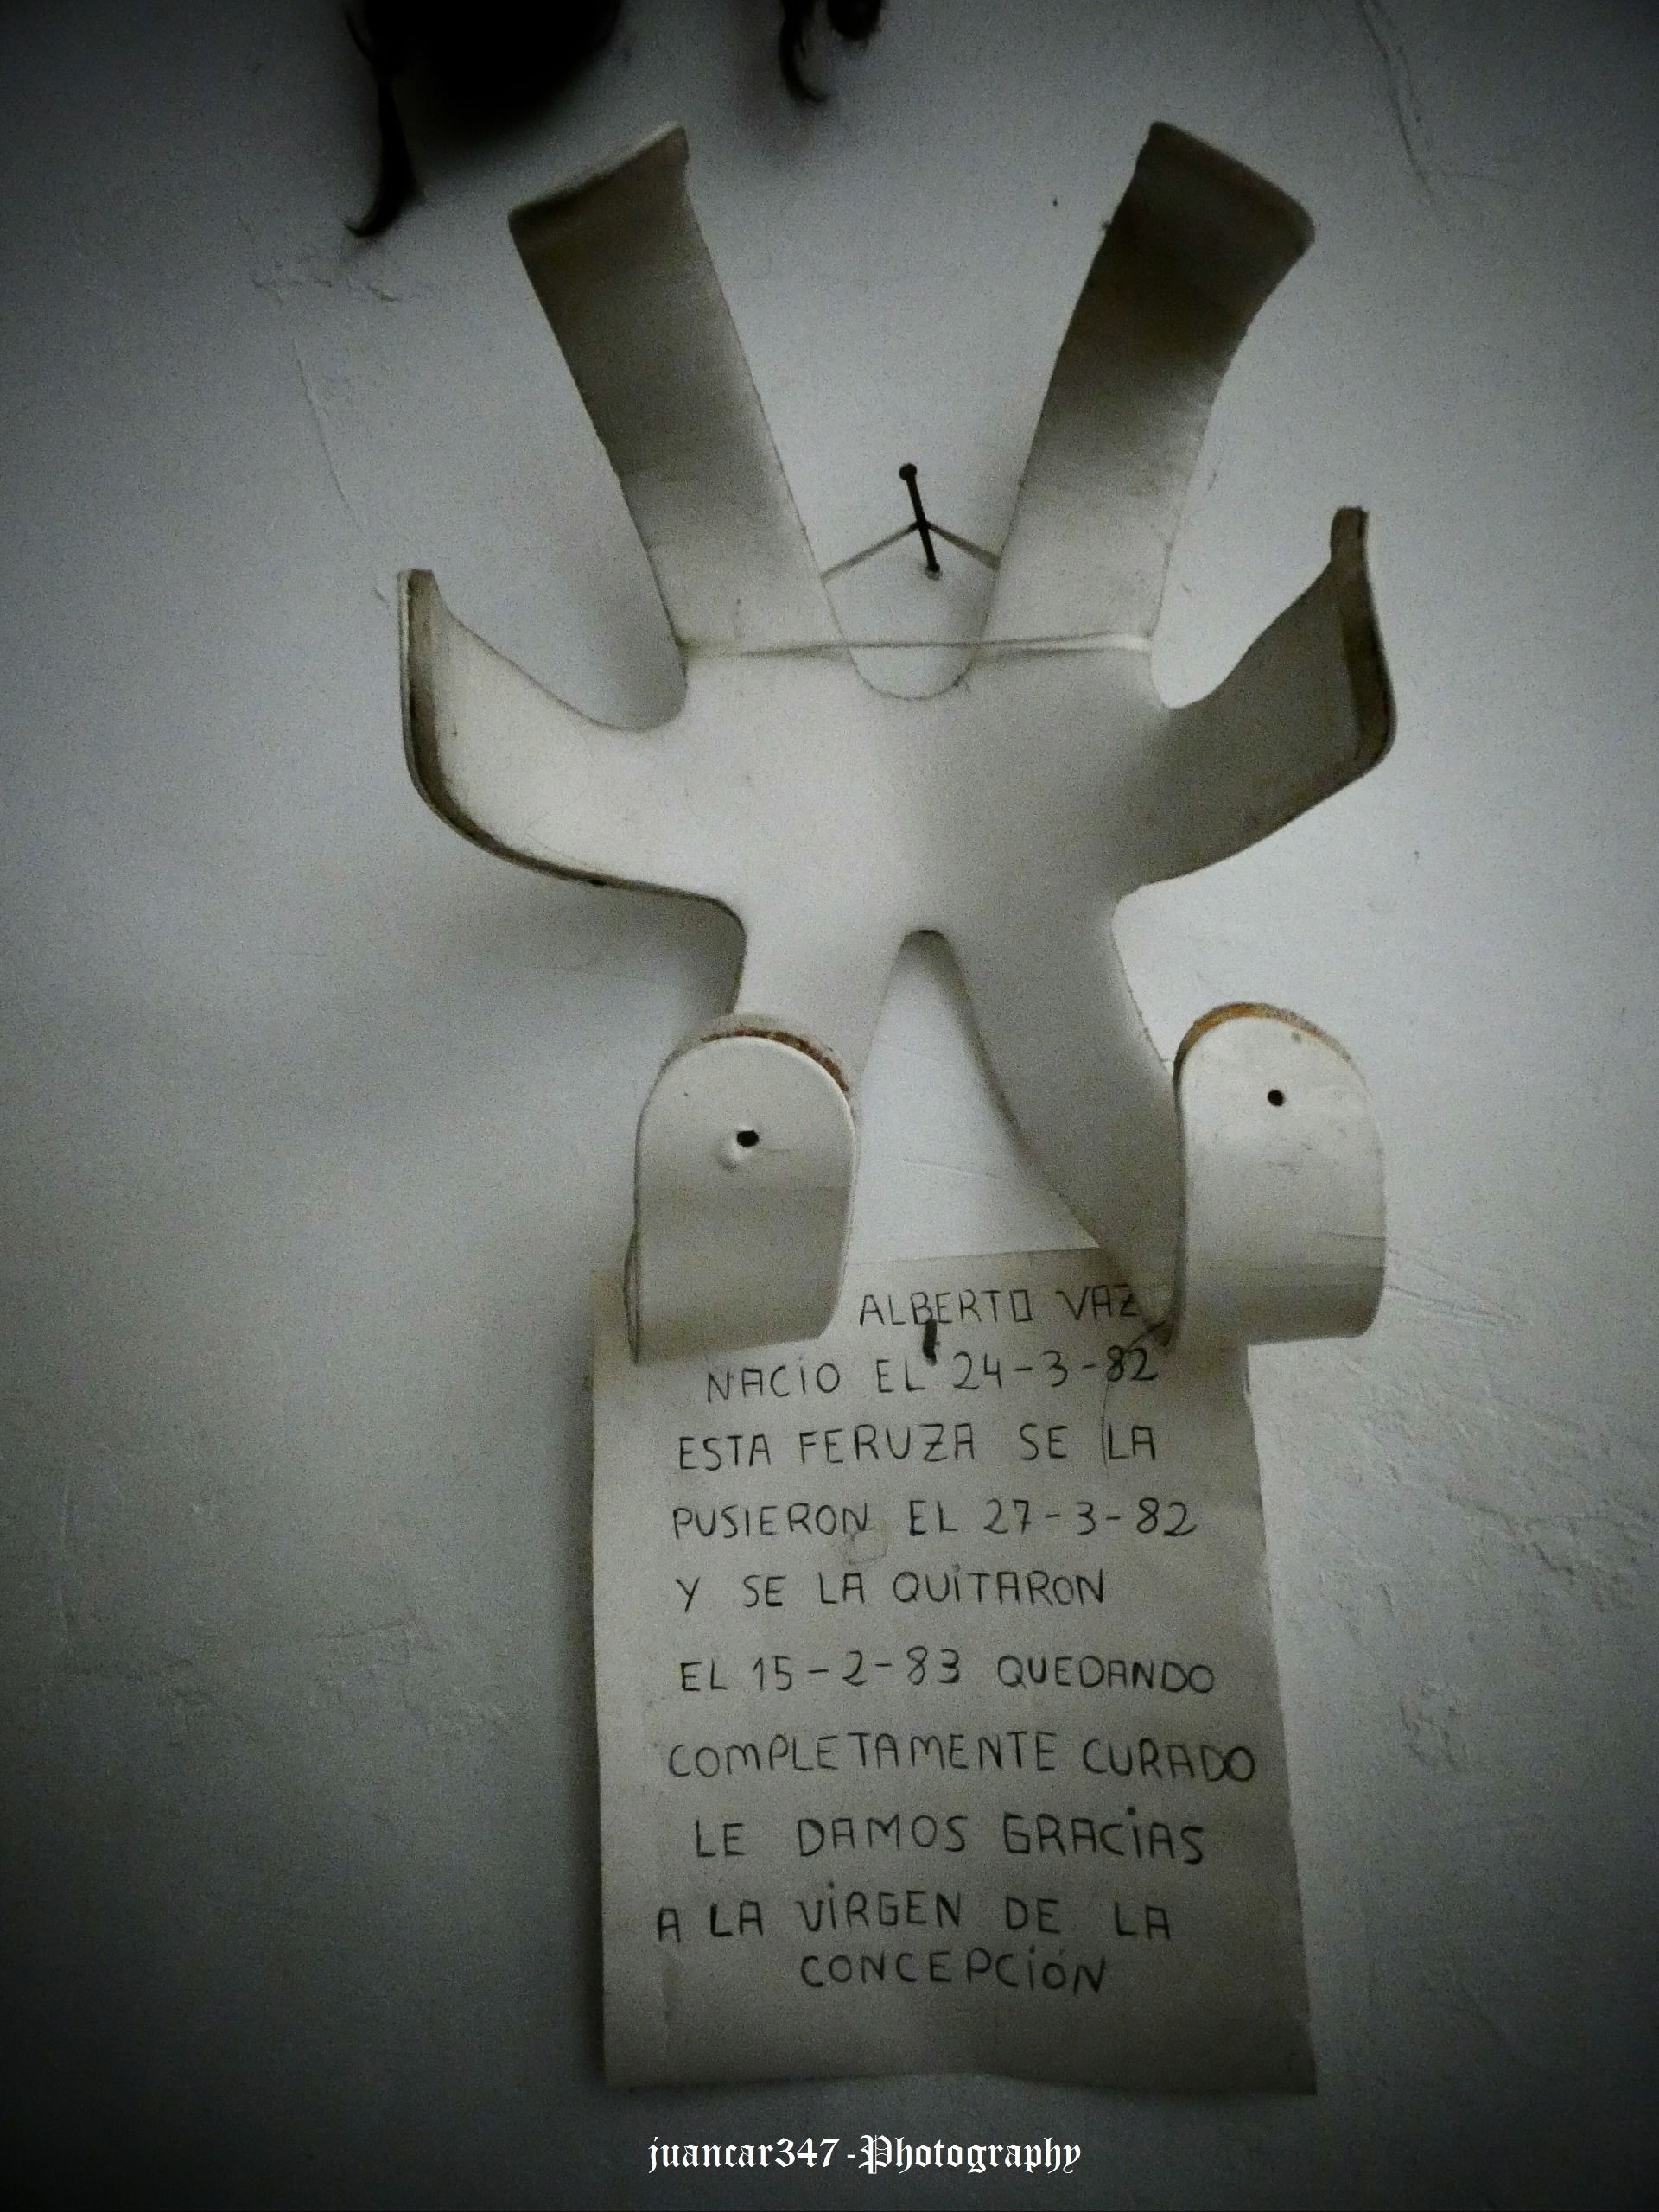 ALBERTO VAZ
NACiO EL 24-3-82
ESTA FERUZA SE LA
PUSIERON EL 27-3-82
Y SE LA QUiTARON
EL 15-2-83 QUEDANDO
COMPLETAMENTE CURADO
LE DAMOS GRACiAS
A LA ViRGEN DE LA
CONCEPCiÓN
juancar347-Photography